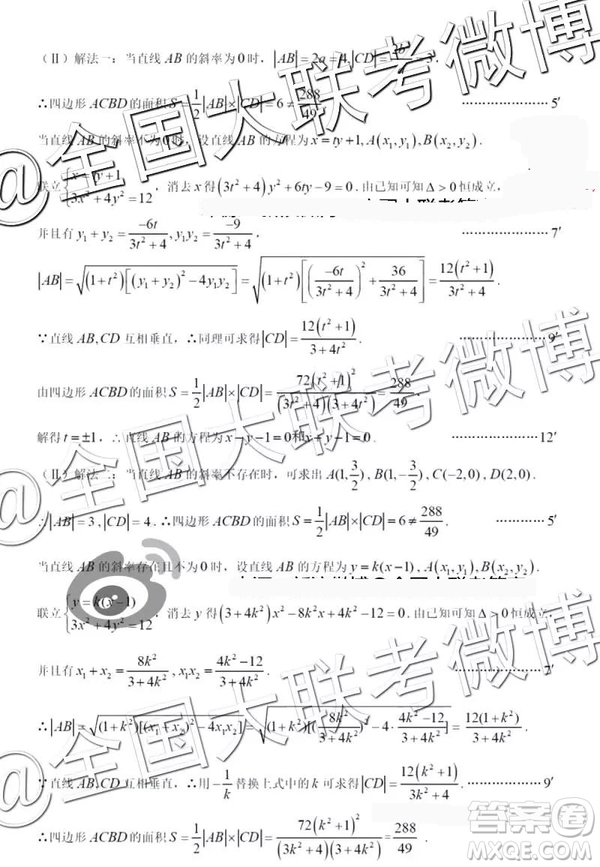 (Ⅱ) 解法一：当直线 AB 的斜率为 0 时，|AB| = 2a = 4, |CD| = 2b²/a = 3.
∴四边形 ACBD 的面积 S = 1/2|AB|×|CD| = 6 ≠ 288/49. ……………… 5′
当直线 AB 的斜率不为 0 时，设直线 AB 的方程为 x = ty + 1, A(x₁, y₁), B(x₂, y₂)
联立 { x = ty + 1, 3x² + 4y² = 12 ，消去 x 得 (3t² + 4)y² + 6ty − 9 = 0. 由已知可知 Δ > 0 恒成立，
并且有 y₁ + y₂ = −6t/(3t² + 4), y₁y₂ = −9/(3t² + 4). ……………… 7′
|AB| = √((1 + t²)[(y₁ + y₂)² − 4y₁y₂]) = √((1 + t²)[(−6t/(3t² + 4))² + 36/(3t² + 4)]) = 12(t² + 1)/(3t² + 4).
∵直线 AB, CD 互相垂直，∴同理可求得 |CD| = 12(t² + 1)/(3 + 4t²). ……………… 9′
由四边形 ACBD 的面积 S = 1/2|AB|×|CD| = 72(t² + 1)²/((3t² + 4)(3 + 4t²)) = 288/49.
解得 t = ±1, ∴直线 AB 的方程为 x − y − 1 = 0 和 x + y − 1 = 0. ……………… 12′
(Ⅱ) 解法二：当直线 AB 的斜率不存在时，可求出 A(1, 3/2), B(1, −3/2), C(−2,0), D(2,0).
∴|AB| = 3, |CD| = 4. ∴四边形 ACBD 的面积 S = 1/2|AB|×|CD| = 6 ≠ 288/49. ………… 5′
当直线 AB 的斜率存在且不为 0 时，设直线 AB 的方程为 y = k(x − 1), A(x₁, y₁), B(x₂, y₂).
联立 { y = k(x − 1), 3x² + 4y² = 12 ，消去 y 得 (3 + 4k²)x² − 8k²x + 4k² − 12 = 0. 由已知可知 Δ > 0 恒成立，
并且有 x₁ + x₂ = 8k²/(3 + 4k²), x₁x₂ = (4k² − 12)/(3 + 4k²). ……………… 7′
∴|AB| = √((1 + k²)[(x₁ + x₂)² − 4x₁x₂]) = √((1 + k²)[(8k²/(3 + 4k²))² − 4·(4k² − 12)/(3 + 4k²)]) = 12(1 + k²)/(3 + 4k²)
∵直线 AB, CD 互相垂直，∴用 −1/k 替换上式中的 k 可求得 |CD| = 12(k² + 1)/(3k² + 4) ………… 9′
∴四边形 ACBD 的面积 S = 1/2|AB|×|CD| = 72(k² + 1)²/((3k² + 4)(3 + 4k²)) = 288/49.
@全国大联考微博
@全国大联考微博
@全国大联考微博
答案圈
MXQE.COM